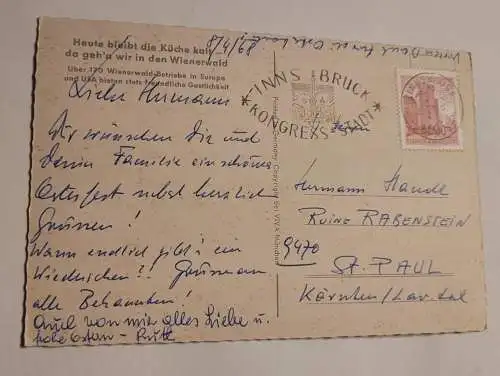 Heute bleibt die Küche kalt
da geh'n wir in den Wienerwald
Über 170 Wienerwald-Betriebe in Europa
und USA bieten stets freundliche Gastlichkeit
8/4/68
Liebe Hermann
Wir wünschen Dir und
Deiner Familie ein schönes
Osterfest nebst herzlichen
Grüssen!
Wann endlich gibt's ein
Wiedersehen?!
alle Bekannten!
Auch von mir alles Liebe u.
frohe Ostern - Ruth
INNSBRUCK
KONGRESS STADT
Hermann Handl
RUINE RABENSTEIN
9470
ST. PAUL
Kärnten/Lav.tal